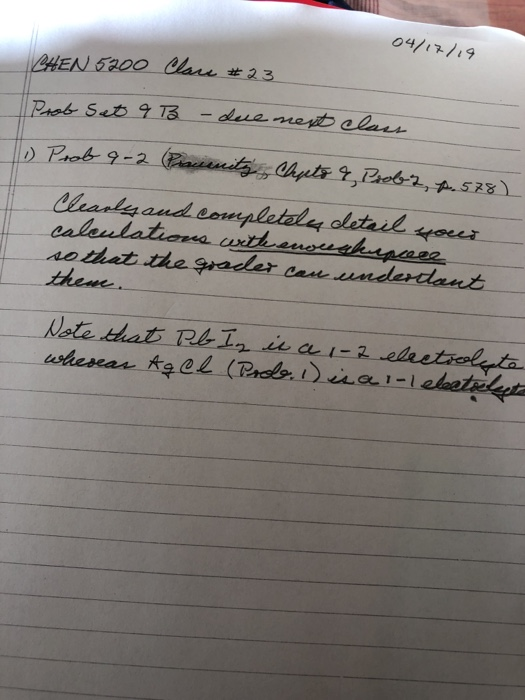 04/17/19
CHEN 5200 Class # 23
Prob Set 9 B - due next class
1) Prob 9-2 ( Chptr 9, Prob 2, p. 578)
Clearly and completely detail your
calculations with enough space
so that the grader can understant
them.
Note that PbI2 is a 1-2 electrolyte
whereas AgCl (Prob. 1) is a 1-1 electrolyte